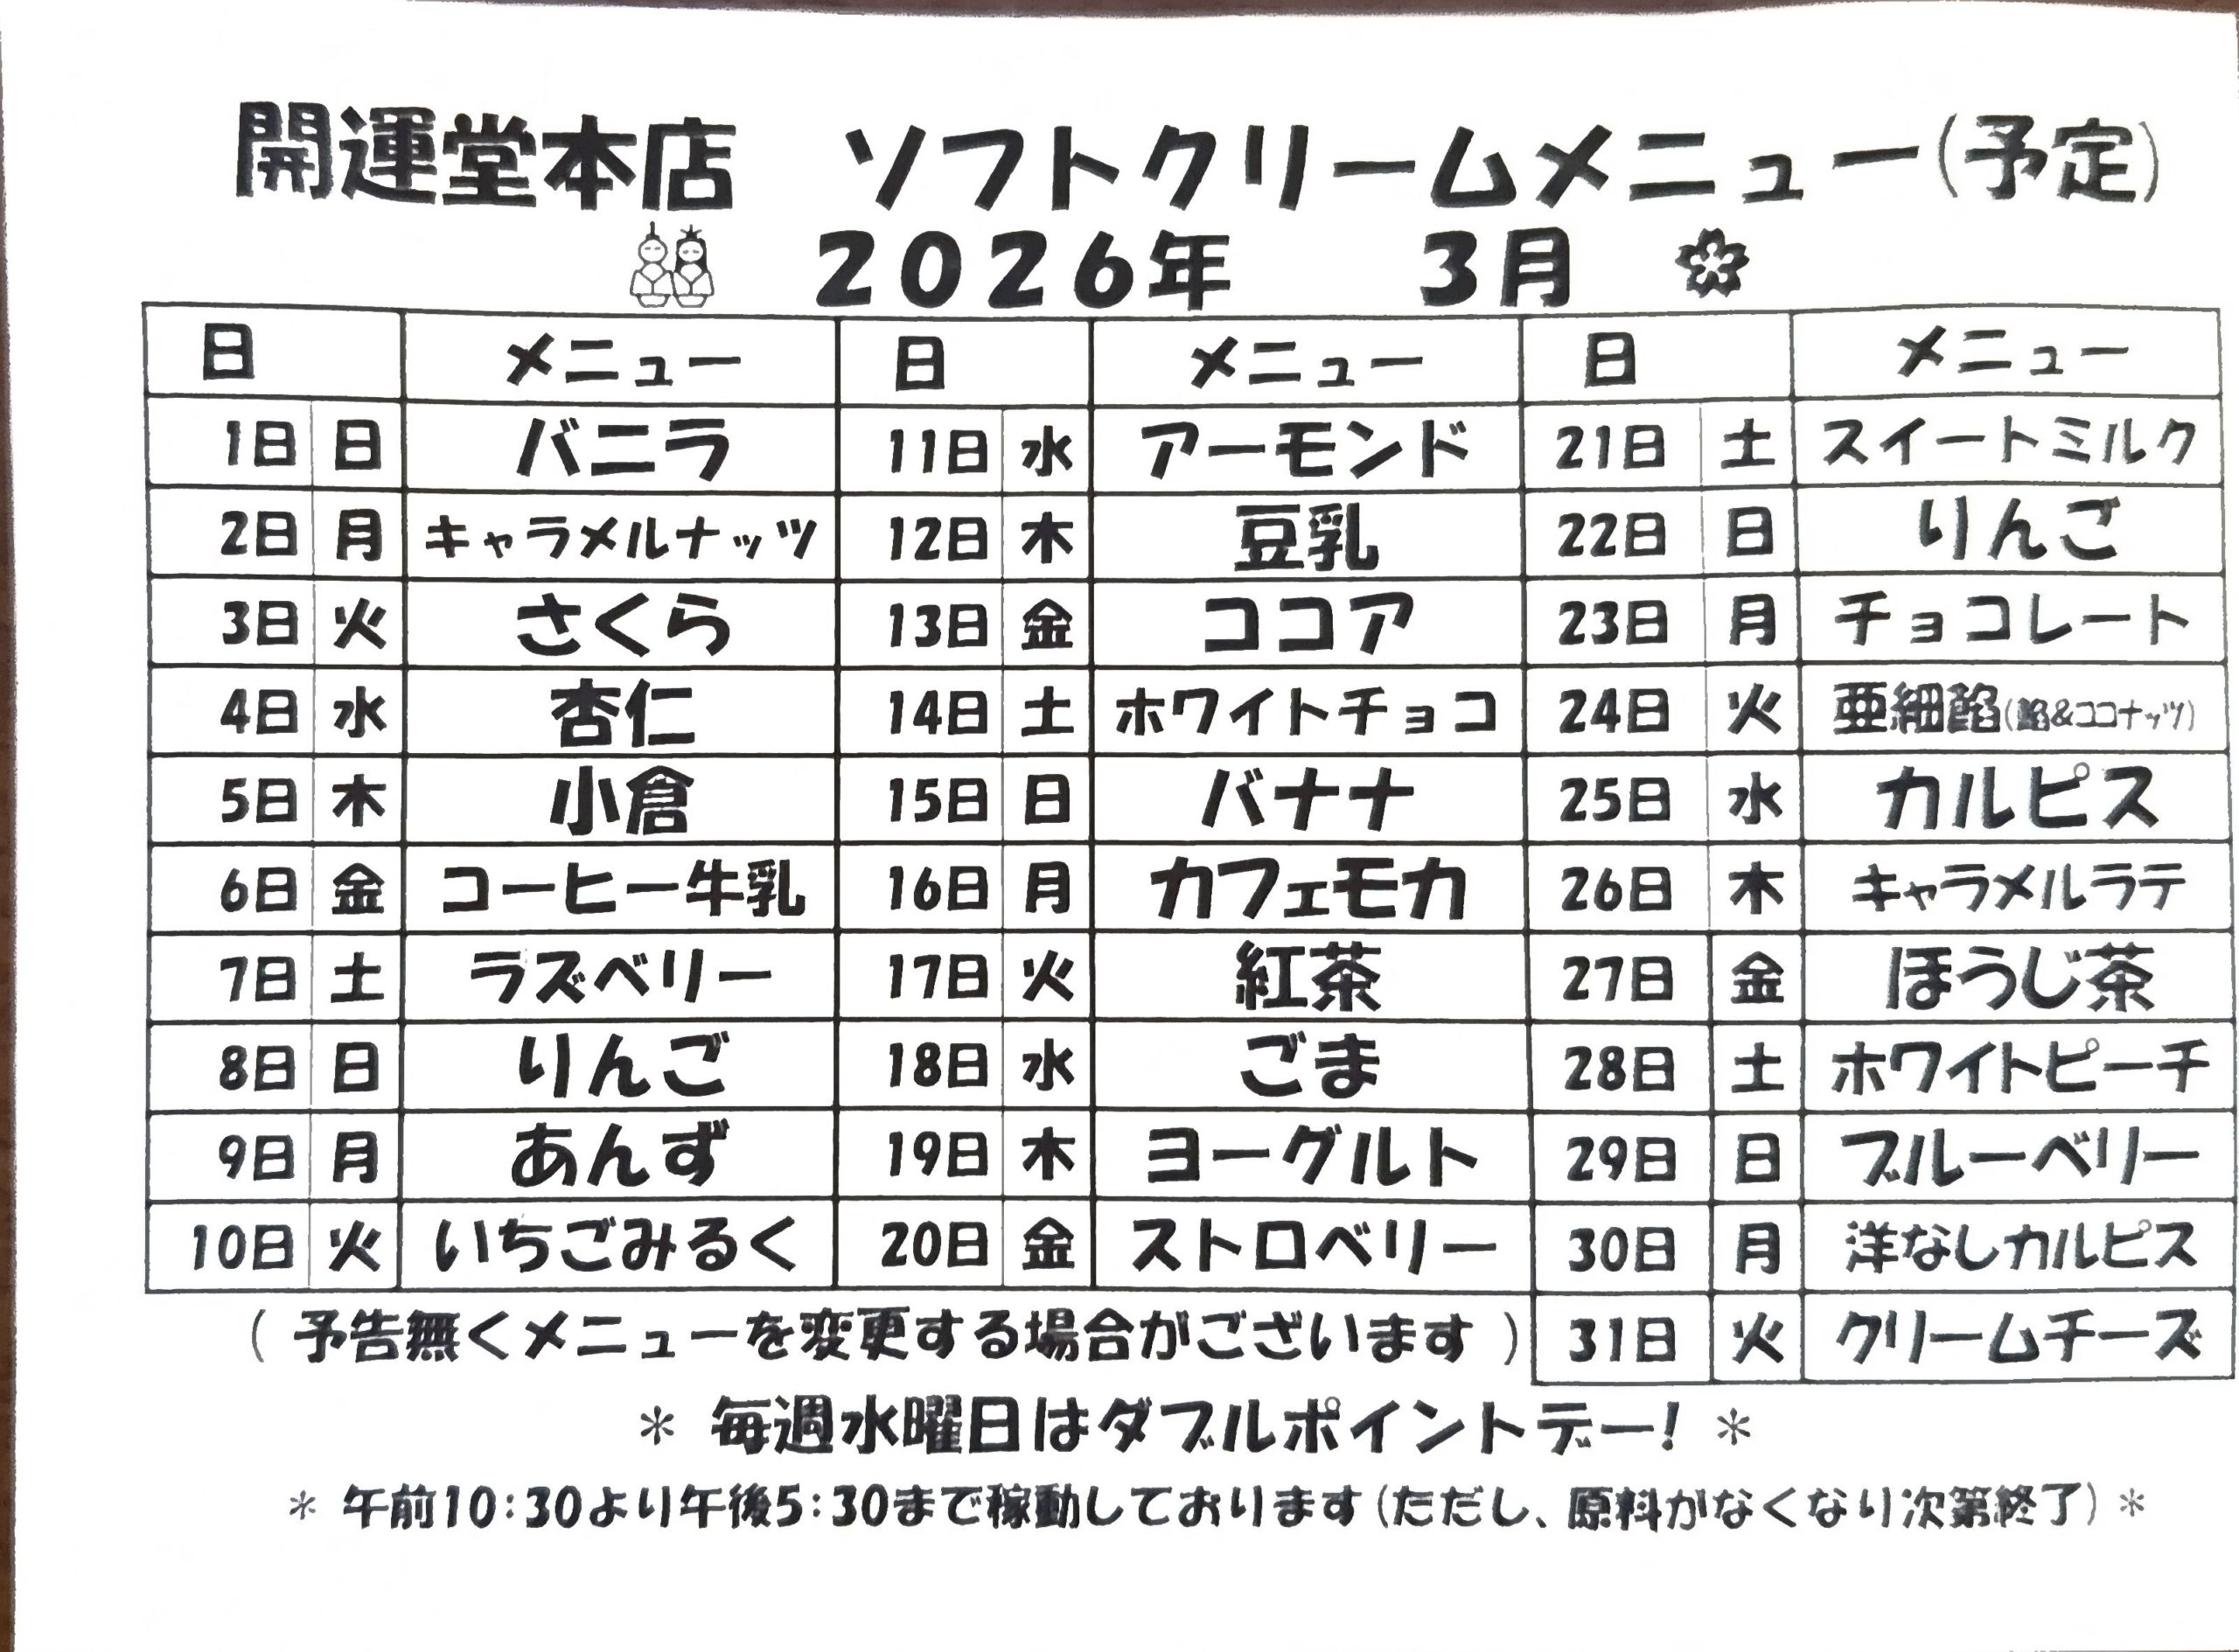 開運堂本店 ソフトクリームメニュー(予定)
2026年 3月
日 メニュー 日 メニュー 日 メニュー
1日 日 バニラ 11日 水 アーモンド 21日 土 スイートミルク
2日 月 キャラメルナッツ 12日 木 豆乳 22日 日 りんご
3日 火 さくら 13日 金 ココア 23日 月 チョコレート
4日 水 杏仁 14日 土 ホワイトチョコ 24日 火 亜細餡(餡&ココナッツ)
5日 木 小倉 15日 日 バナナ 25日 水 カルピス
6日 金 コーヒー牛乳 16日 月 カフェモカ 26日 木 キャラメルラテ
7日 土 ラズベリー 17日 火 紅茶 27日 金 ほうじ茶
8日 日 りんご 18日 水 ごま 28日 土 ホワイトピーチ
9日 月 あんず 19日 木 ヨーグルト 29日 日 ブルーベリー
10日 火 いちごみるく 20日 金 ストロベリー 30日 月 洋なしカルピス
( 予告無くメニューを変更する場合がございます ) 31日 火 クリームチーズ
* 毎週水曜日はダブルポイントデー! *
* 午前10:30より午後5:30まで稼動しております(ただし、原料がなくなり次第終了) *